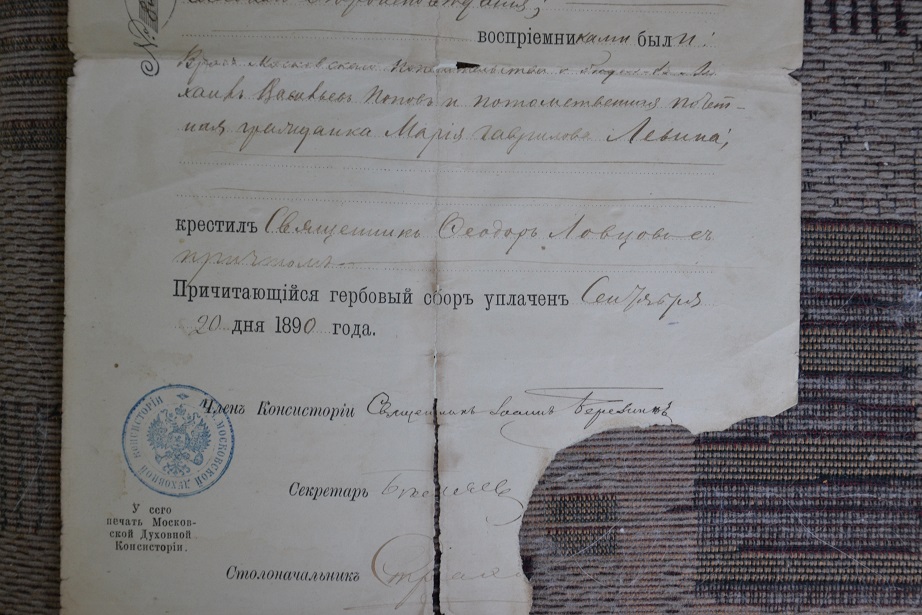 воспріемниками были:
Врачъ Московскаго Попечительства о бѣдныхъ Ми-
хаилъ Васильевъ Поповъ и потомственная почет-
ная гражданка Марія Гаврилова Левина;
крестилъ Священникъ Ѳеодоръ Ловцовъ съ
причтомъ
Причитающійся гербовый сборъ уплаченъ Сентября
20 дня 1890 года.
Членъ Консисторіи Священникъ Іоаннъ Березкинъ
Секретарь
Столоначальникъ
МОСКОВСКОЙ ДУХОВНОЙ КОНСИСТОРІИ
У сего
печать Москов-
ской Духовной
Консисторіи.